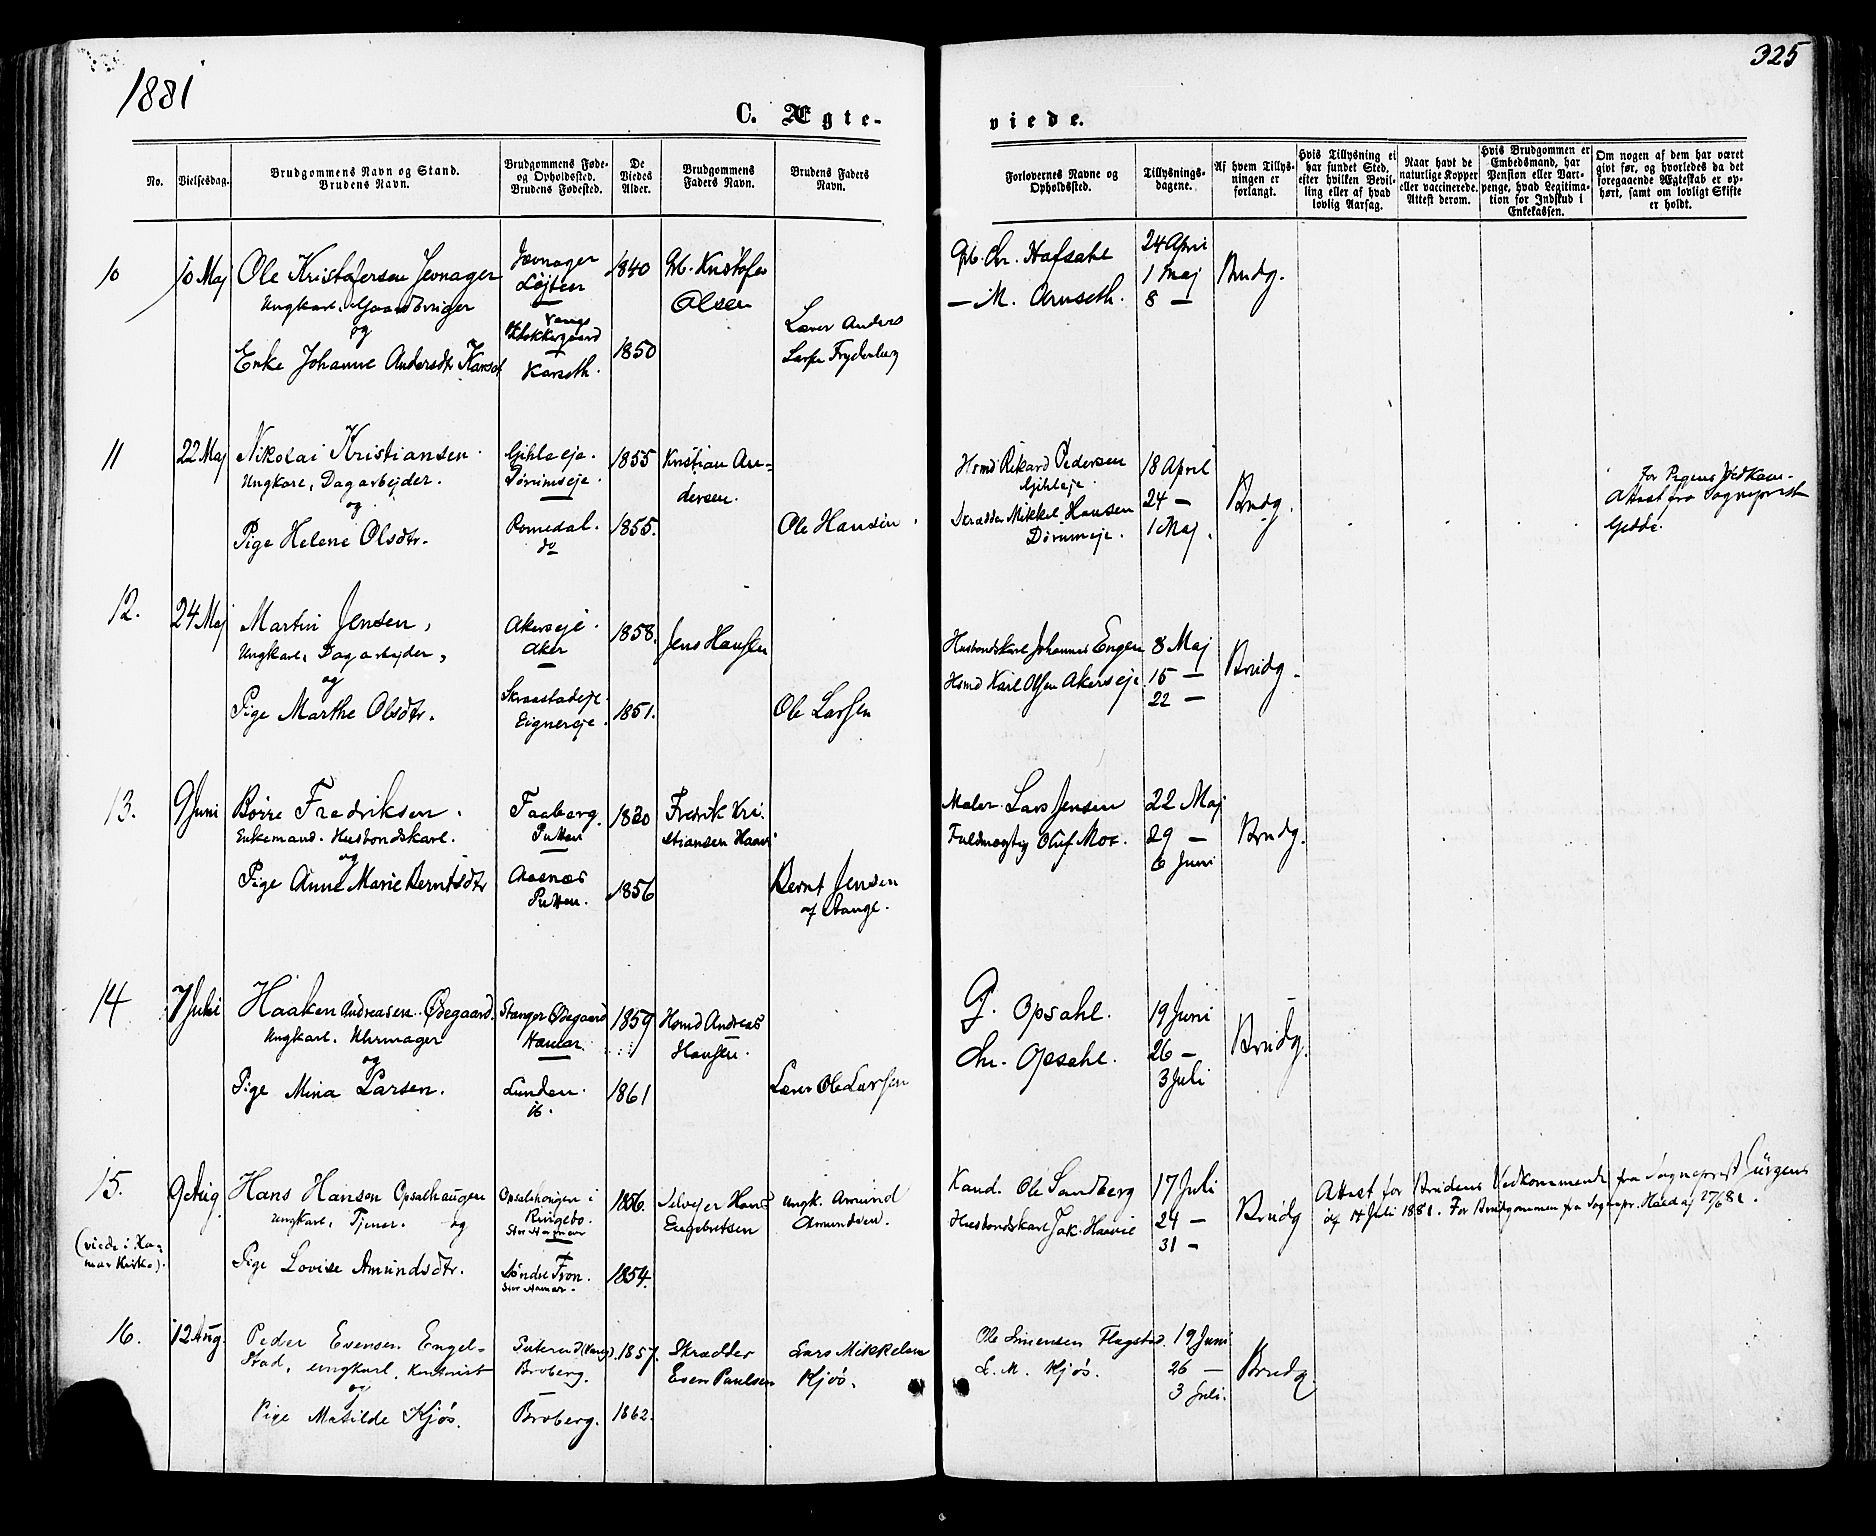 1881
325
C. Ægte-
viede.
No.
Vielsesdag.
Brudgommens Navn og Stand.
Brudens Navn.
Brudgommens Føde-
og Opholdssted.
Brudens Fødested.
De
Viedes
Alder.
Brudgommens
Faders Navn.
Brudens Faders
Navn.
Forlovernes Navne og
Opholdssted.
Tillysnings-
dagene.
Af hvem Tillys-
ningen er
forlangt.
Hvis Tillysning ei
har fundet Sted,
efter hvilken Bevil-
ling eller af hvad
lovlig Aarsag.
Naar havt de
naturlige Kopper
eller vaccinerede.
Attest derom.
Hvis Brudgommen er
Embedsmand, har
Pension eller Vart-
penge, hvad Legitima-
tion for Indskud i
Enkekassen.
Om nogen af dem har været
givt før, og hvorledes da det
foregaaende Ægteskab er op-
hørt, samt om lovligt Skifte
er holdt.
10
10 Maj
Ole Kristofersen Jevnager
Ungkarl, Gaardbruger
og
Enke Johanne Andersdtr
Jevnager
Løjten
Vangs
Klokkergaard
Karseth.
1840
1850
Gb. Kristofer
Olsen
Lærer Anders
Larsen Frydenberg
Gb. Chr. Hafsahl
— M. Aruseth.
24 April
1 Maj
8 —
Brudg.
11
22 Maj
Nikolai Kristiansen.
Ungkarl, Dagarbejder.
og
Pige Helene Olsdtr.
Gihleeje.
Dørumseje.
Romedal.
do
1855
1855.
Kristian An-
dersen.
Ole Hansen.
Hsmd Rikard Pedersen
Gihleeje.
Skrædder Mikkel Hansen
Dørumeje.
18 April
24 —
1 Maj.
Brudg.
For Pigens Vedkom-
Attest fra Sogneprest
Gedde.
12.
24 Maj
Martin Jensen,
Ungkarl, Dagarbejder,
og
Pige Marthe Olsdtr.
Akerseje.
Aker
Skraastadeje
Eignereje.
1858.
1851.
Jens Hansen
Ole Larsen
Husbondskarl Johannes Engen
Hsmd Karl Olsen Akerseje.
8 Maj
15 —
22 —
Brudg.
13.
9 Juni
Børre Fredriksen.
Enkemand. Husbondskarl.
og
Pige Anne Marie Berntsdtr
Faaberg.
Putten
Aasnæs
Putten.
1830
1856
Fredrik Kri-
stiansen Haave
Bernt Jensen
af Stange.
Maler Lars Jensen
Fuldmægtig Oluf Moe.
22 Maj
29 —
6 Juni
Brudg.
14
7 Juli
Haaken Andreasen Ødegaard.
Ungkarl. Uhrmager
og
Pige Mina Larsen.
Stange Ødegaard
Hamar.
Lunden.
ib.
1859
1861
Hsmd Andreas
Hansen.
Lærer Ole Larsen
G. Opsahl.
Chr. Opsahl.
19 Juni
26 —
3 Juli
Brudg.
15.
9 Aug
(viede i Ha-
mar Kirke).
Hans Hansen Opsalhaugen
Ungkarl, Tjener. og
Pige Lovise Amundsdtr.
Opsalhougen i
Ringebo.
Stor Hamar
Søndre Fron.
Stor Hamar.
1856.
1854.
Selvejer Hans
Engebretsen
Ungk. Amund
Amundsen.
Kand. Ole Sandberg
Husbondskarl Jak. Haavie
17 Juli
24 —
31 —
Brudg
Attest for Brudens Vedkommende fra Sogneprest Jürgens
af 14 Juli 1881. For Brudgommen fra Sognepr. af 27/6 81.
16.
12 Aug.
Peder Evensen Engel-
stad, ungkarl,
og
Pige Matilde Kjøs.
(Vang).
Broberg.
Broberg.
1857.
1862.
Skrædder
Even Paulsen
Lars Mikkelsen
Kjøs.
Ole Simensen Flagstad.
L. M. Kjøs.
19 Juni
26 —
3 Juli.
Brudg